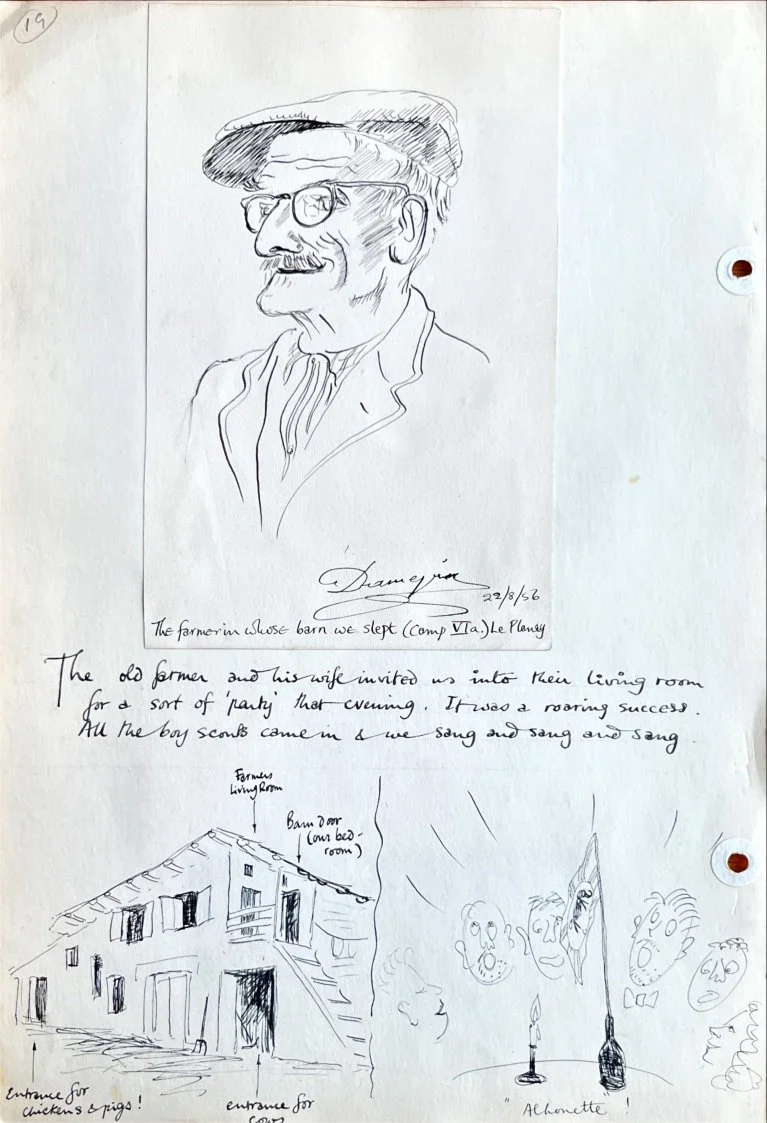 19
22/8/56
The farmer in whose barn we slept (Camp VIa.) Le Plenay
The old farmer and his wife invited us into their living room
for a sort of 'party' that evening. It was a roaring success.
All the boy scouts came in & we sang and sang and sang.
Farmers
Living Room
Barn Door
(our bed-
room)
Entrance for
chickens & pigs!
entrance for
cows
"Alhonette"!